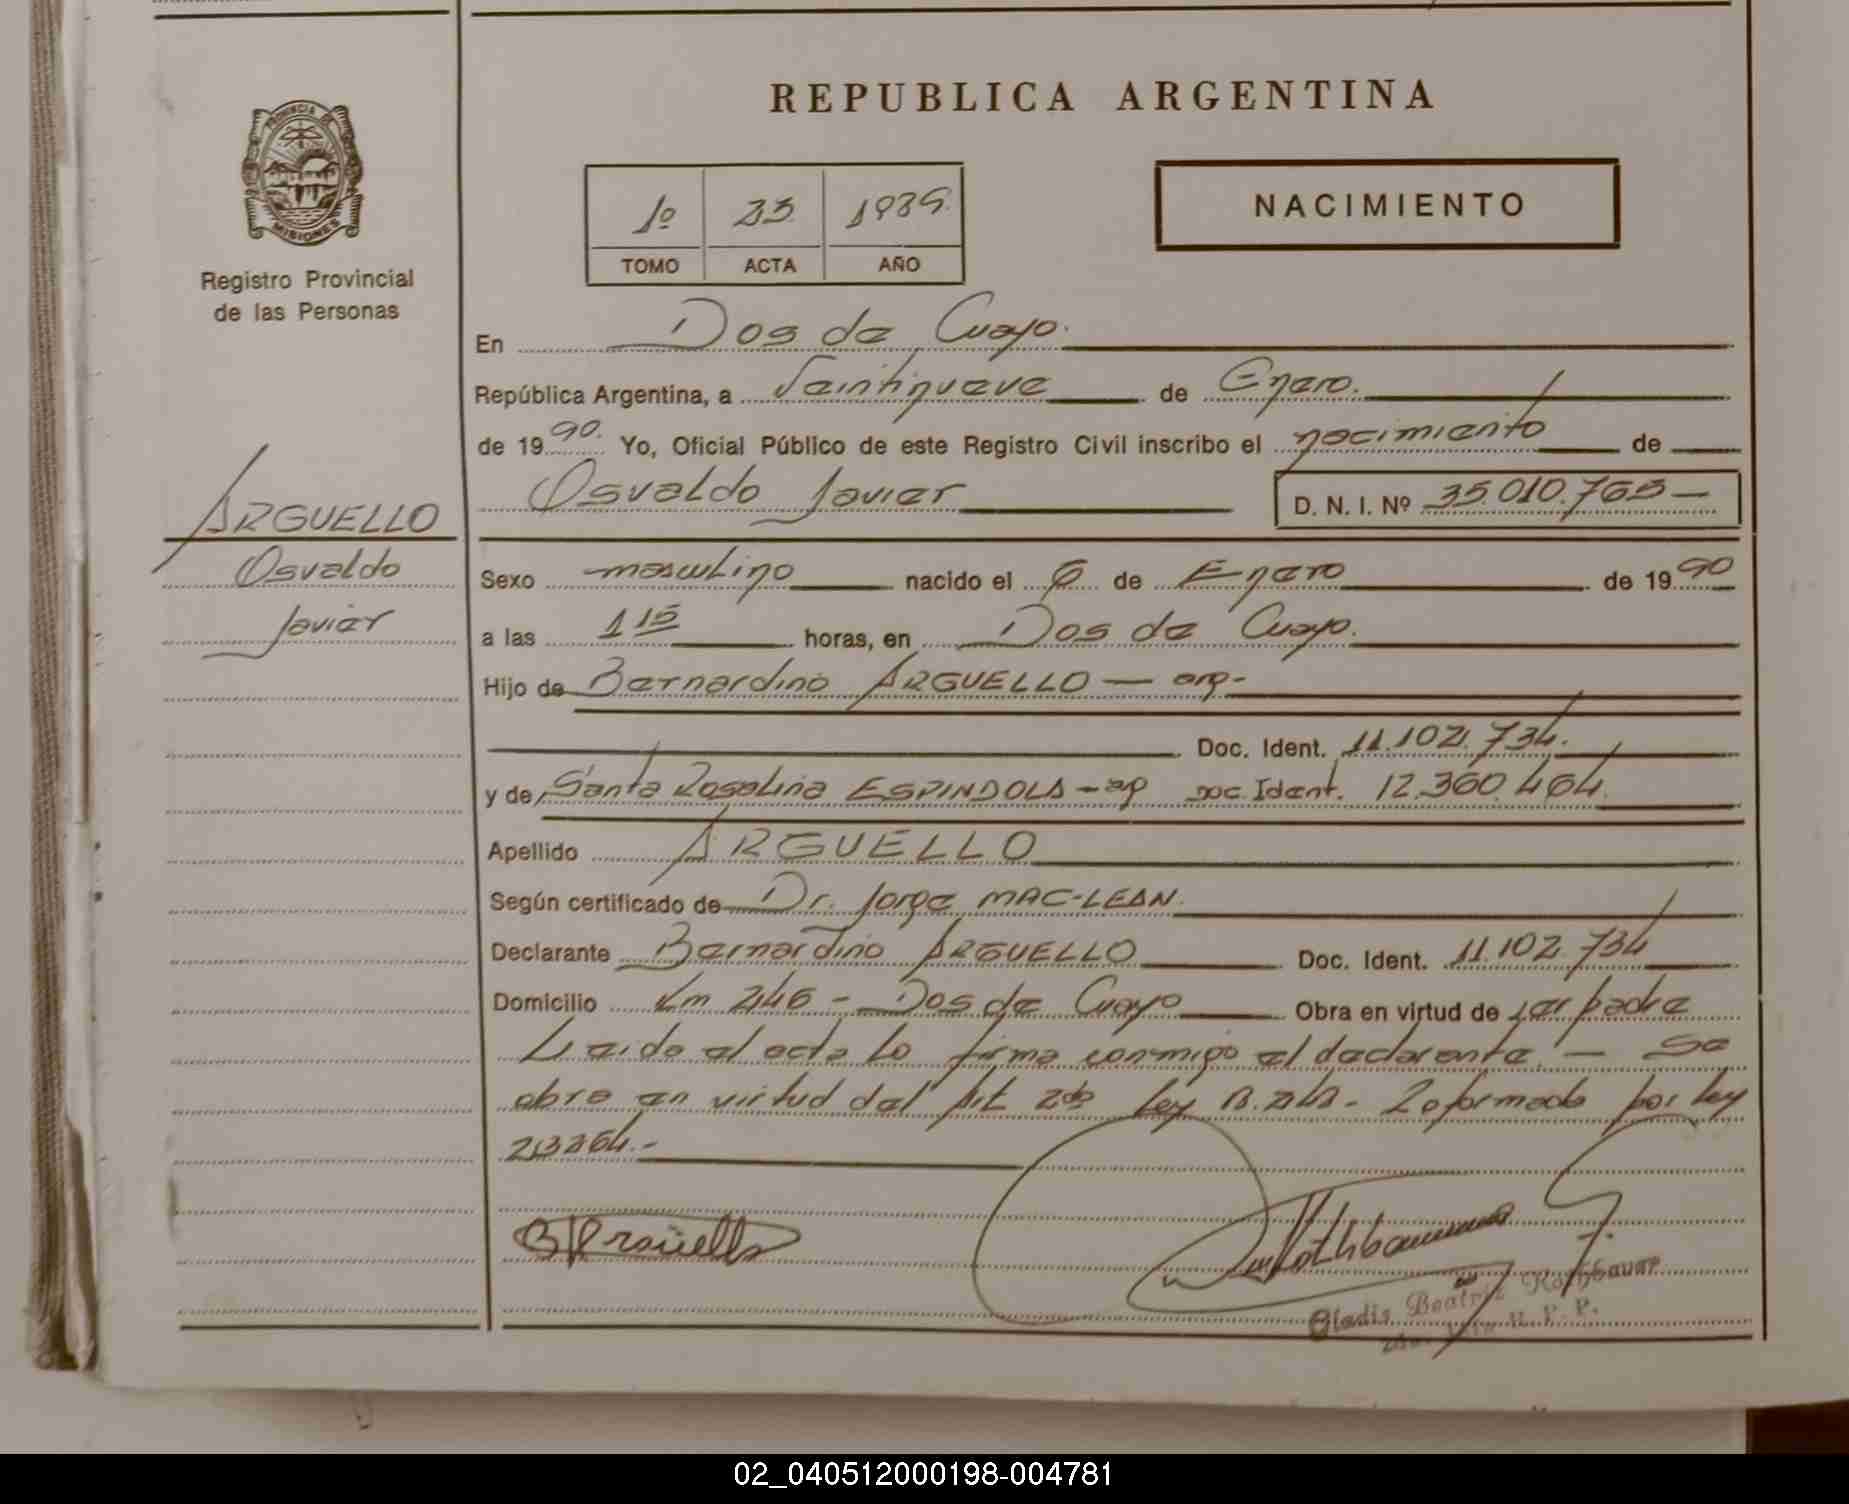 REPUBLICA ARGENTINA
PROVINCIA DE
MISIONES
Registro Provincial
de las Personas
1º 23
TOMO ACTA AÑO
NACIMIENTO
En Dos de Mayo.
República Argentina, a Veintinueve de Enero.
de 1990. Yo, Oficial Público de este Registro Civil inscribo el nacimiento de
Osvaldo Javier D. N. I. Nº 35.010.765 —
ARGUELLO
Osvaldo
Javier
Sexo masculino nacido el 6 de Enero de 1990
a las 1 15 horas, en Dos de Mayo.
Hijo de Bernardino ARGUELLO — arg-
Doc. Ident. 11.102.734.
y de Santa Rosalina ESPINDOLA - arg Doc. Ident. 12.360.464.
Apellido ARGUELLO
Según certificado de Dr. Jorge MAC-LEAN.
Declarante Bernardino ARGUELLO Doc. Ident. 11.102.734
Domicilio Km 246 - Dos de Mayo Obra en virtud de ser padre
Leida el acta la firma conmigo el declarante. — Se
obra en virtud del Art 2do ley Reformada por ley
B Arguello
Gladis Beatriz Rothbauer
02_040512000198-004781